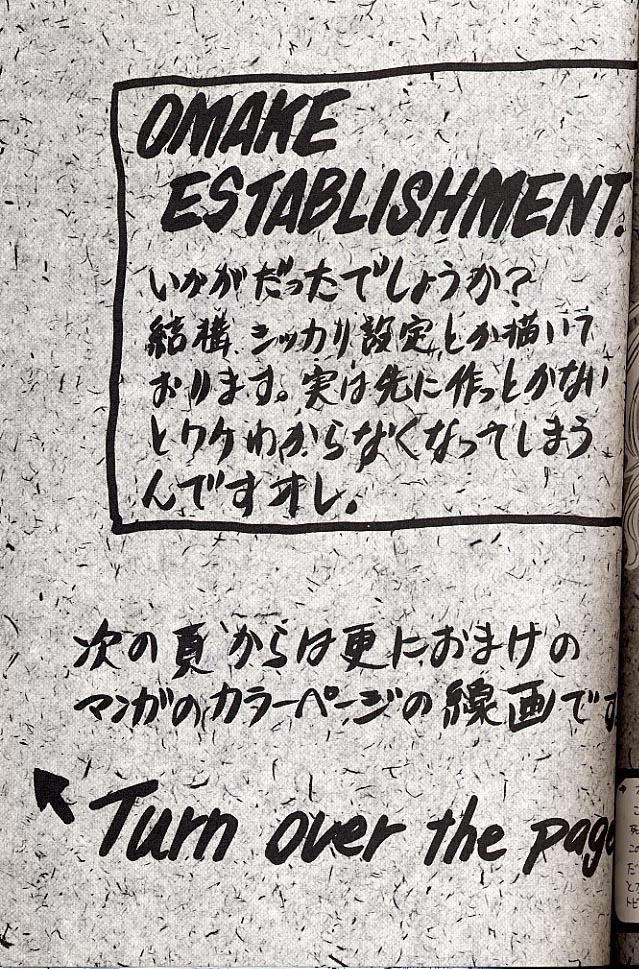 OMAKE
ESTABLISHMENT.
いかがだったでしょうか?
結構シッカリ設定とか描いて
おります。実は先に作っとかない
とワケわからなくなってしまう
んですオレ。
次の頁からは更におまけの
マンガのカラーページの線画です
Turn over the page